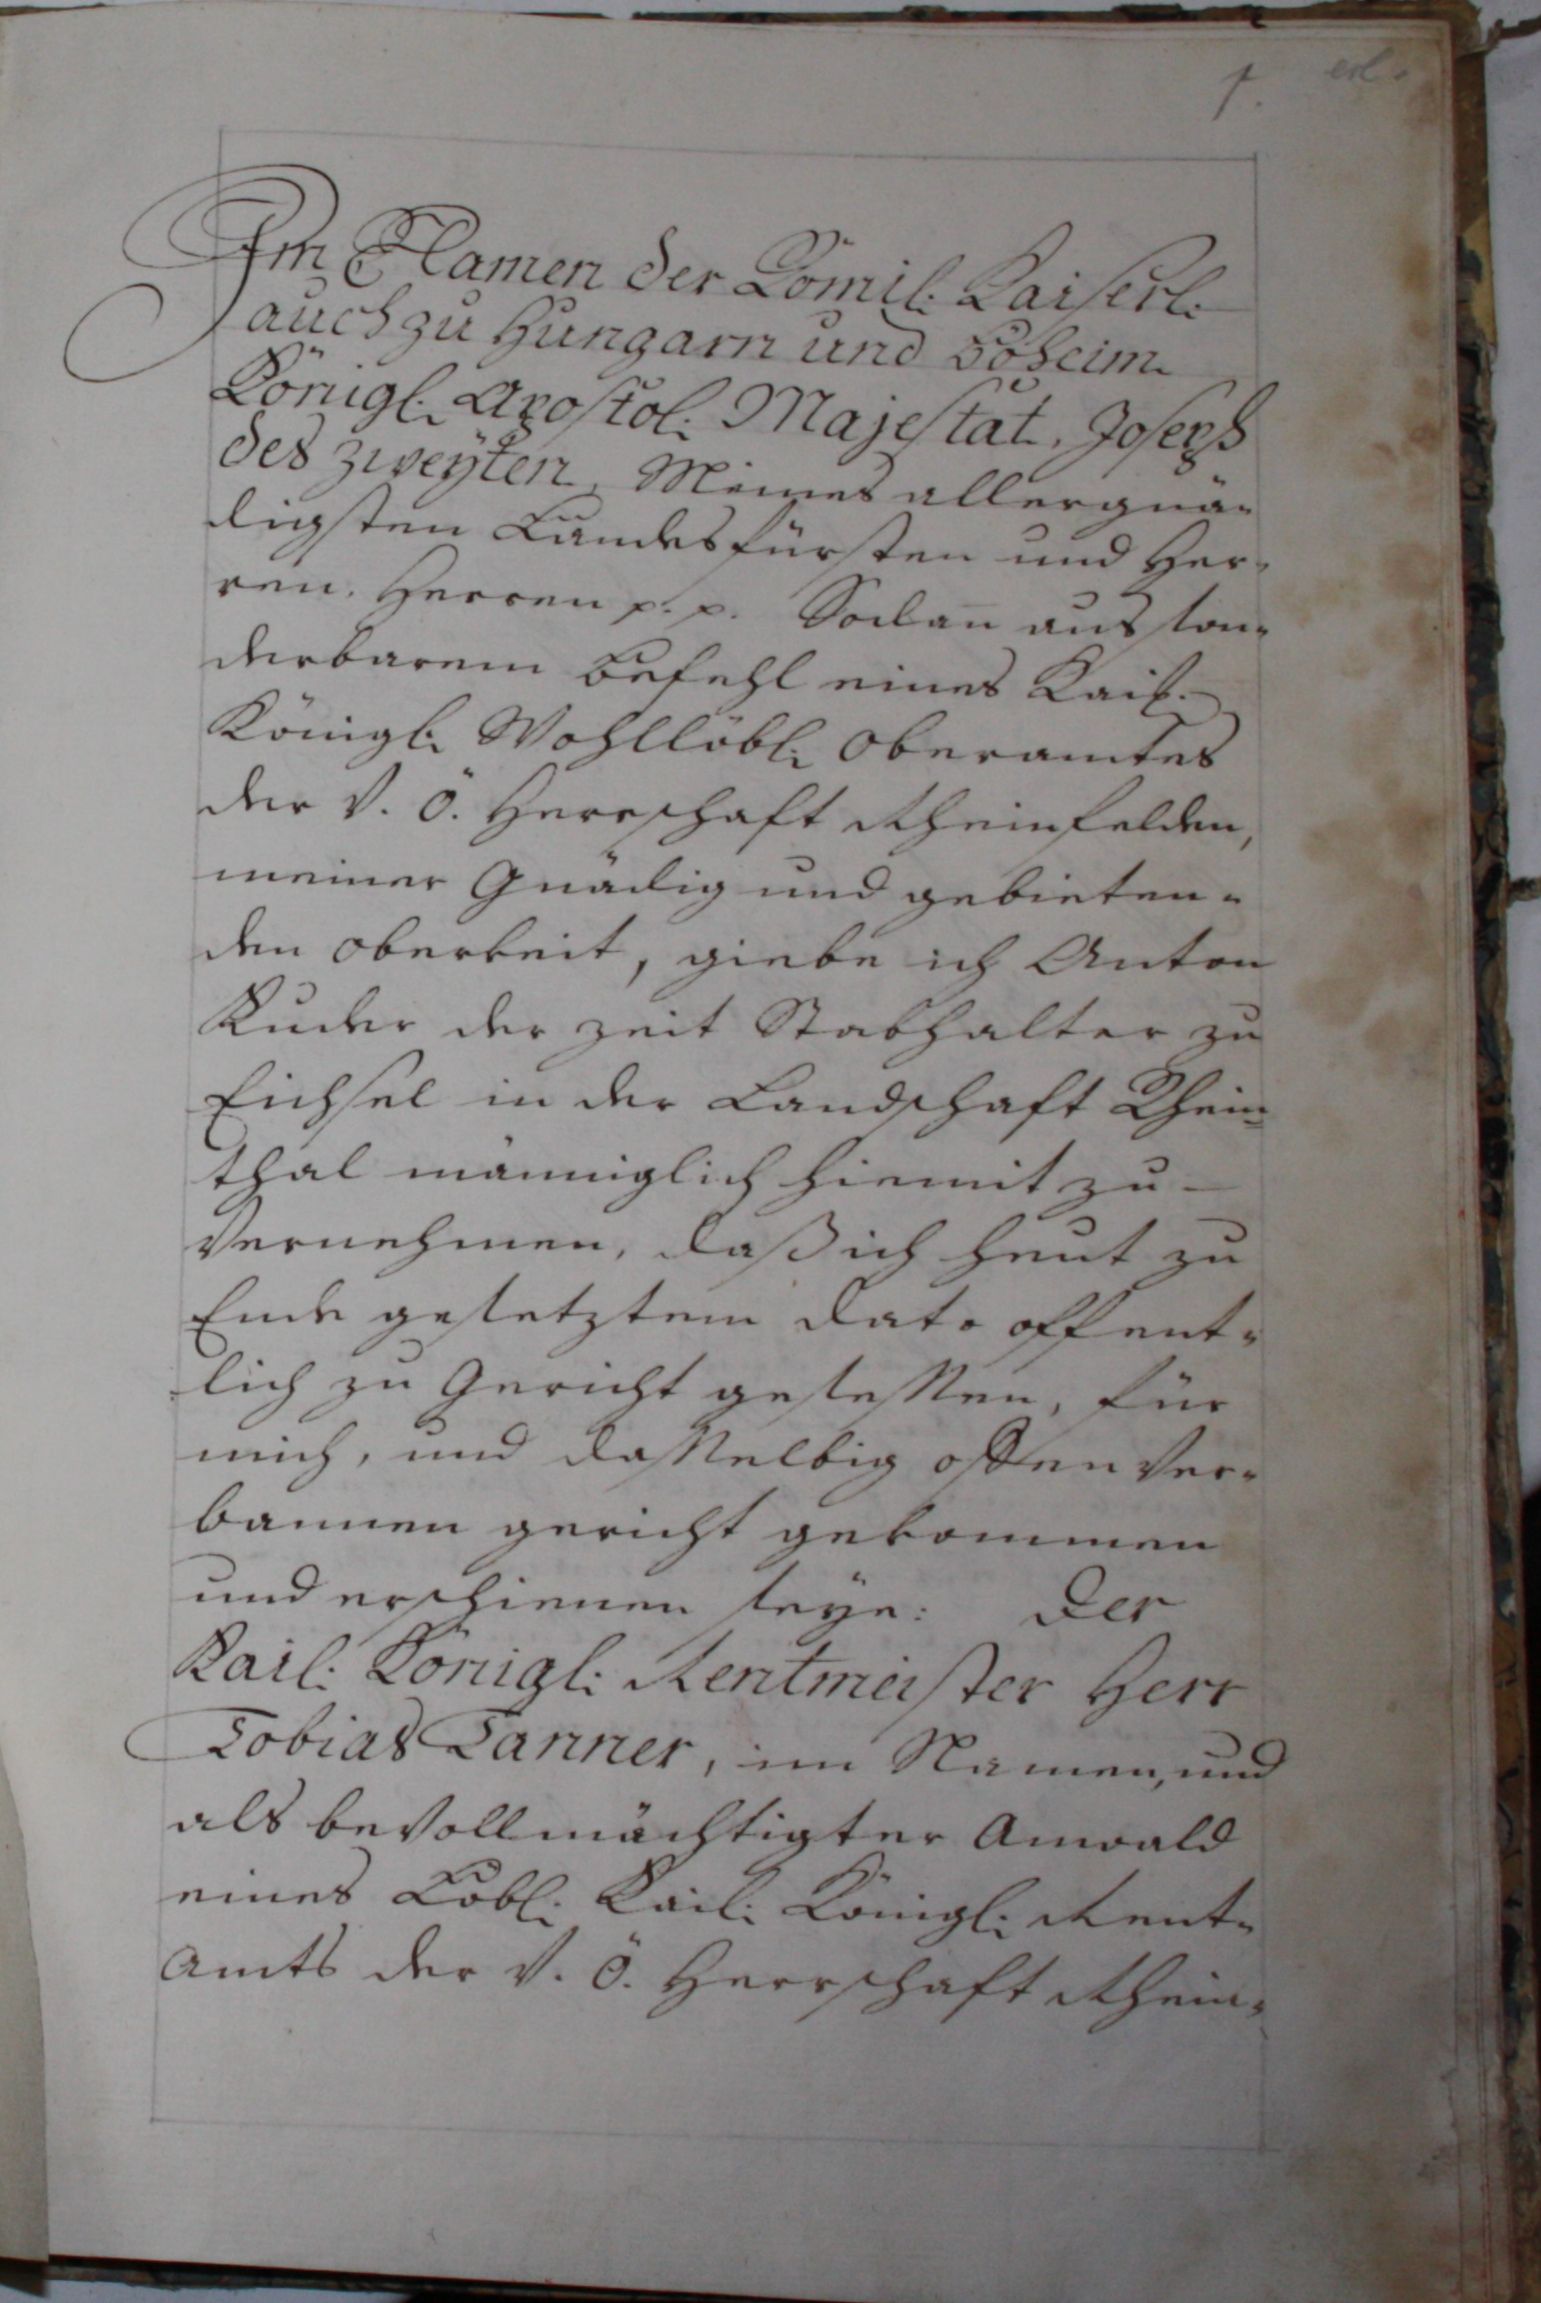 1. erl.
Im Namen der Römil. Kaiserl.
auch zu Hungarn und Böheim
Königl. Apostol. Majestät, Joseph
des zweÿten, Meines allergnä-
digsten Landesfürsten und Her-
ren, Herren p. p. Sodan̄ aus son-
derbarem Befehl eines Kais.
Königl. Wohllöbl. Oberamtes
der V. Ö. Herrschaft Rheinfelden,
meiner Gnädig und gebieten-
den Oberkeit, giebe ich Anton
Ruder der zeit Stabhalter zu
Eichsel in der Landschaft Rhein-
thal männiglich hiemit zu
vernehmen, daß ich heut zu
Ende gesetztem Dato offent-
lich zu Gericht gesessen, für
mich, und dasselbig offen ver-
bannen gericht gekommen
und erschienen seÿe: Der
Kail. Königl. Rentmeister Herr
Tobias Tanner, im Namen, und
als bevollmächtigter Anwald
eines Löbl. Kail. Königl. Rent-
Amts der V. Ö. Herrschaft Rhein-